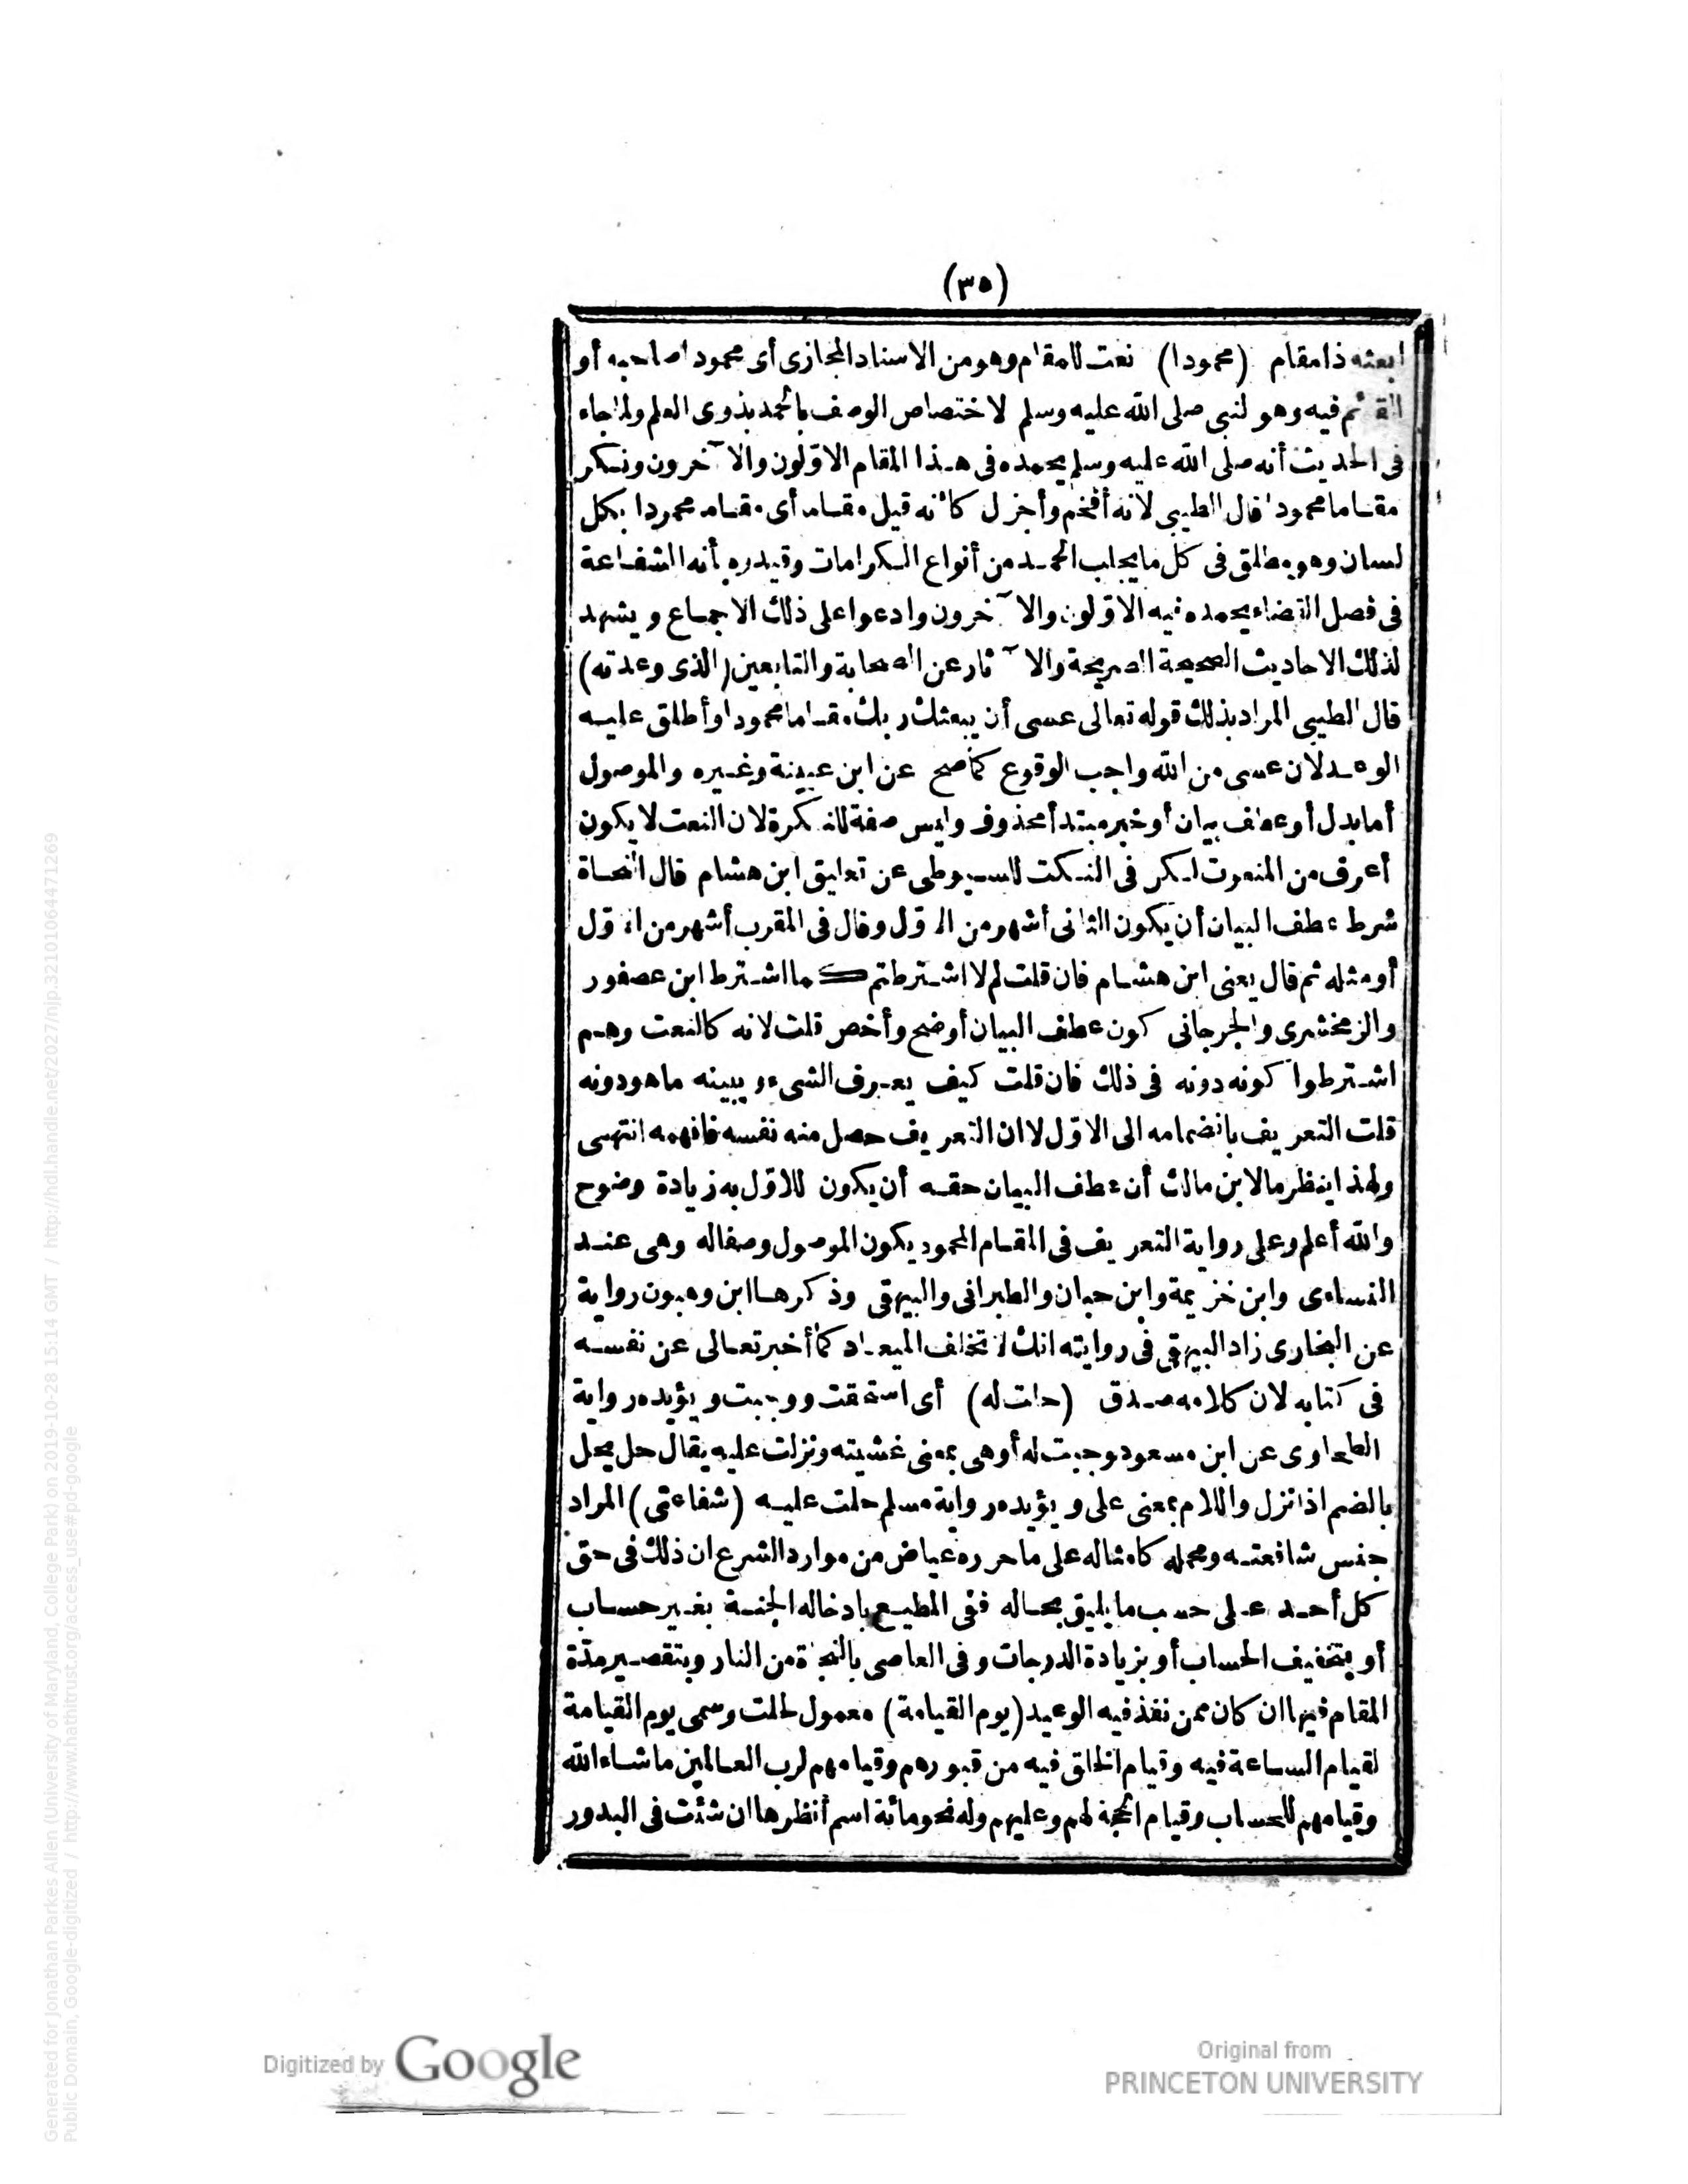 (٣٥)
ابعثه ذا مقام (محمودا) نعت للمقام وهو من الاسناد المجازى أى محمودا صاحبه أو
القائم فيه وهو لنبى صلى الله عليه وسلم لاختصاص الوصف بالحمد بذوى العلم ولذا جاء
فى الحديث أنه صلى الله عليه وسلم يحمده فى هذا المقام الاوّلون والآخرون ونكر
مقاما محمودا قال الطيبى لانه أفخم وأجزل كانه قيل مقاما أى مقاما محمودا بكل
لسان وهو مطلق فى كل ما يجلب الحمد من أنواع الكرامات وقيدره بأنه الشفاعة
فى فصل القضاء يحمده فيه الاوّلون والآخرون وادعوا على ذلك الاجماع ويشهد
لذلك الاحاديث الصحيحة الصريحة والآثار عن الصحابة والتابعين (الذى وعدته)
قال الطيبى المراد بذلك قوله تعالى عسى أن يبعثك ربك مقاما محمودا وأطلق عليه
الوعد لان عسى من الله واجب الوقوع كما صح عن ابن عيينة وغيره والموصول
أما بدل أو عطف بيان أو خبر مبتدأ محذوف وليس صفة للنكرة لان النعت لا يكون
أعرف من المنعوت لكن فى النكت للسيوطى عن تعاليق ابن هشام قال النحاة
شرط عطف البيان أن يكون الثانى أشهر من الاوّل وقال فى المقرب أشهر من الاوّل
أو مثله ثم قال يعنى ابن هشام فان قلت لم لا اشترطتم كما اشترط ابن عصفور
والزمخشرى والجرجانى كون عطف البيان أوضح وأخص قلت لانه كالنعت وهم
اشترطوا كونه دونه فى ذلك فان قلت كيف يعرف الشىء ويبينه ما هو دونه
قلت التعريف بانضمامه الى الاوّل لا ان التعريف حصل منه نفسه فافهمه انتهى
ولهذا ينظر ما لابن مالك أن عطف البيان حقه أن يكون للاوّل به زيادة وضوح
والله أعلم وعلى رواية التعريف فى المقام المحمود يكون الموصول وصفاله وهى عند
النساءى وابن خزيمة وابن حبان والطبرانى والبيهقى وذكرها ابن وهبون رواية
عن البخارى زاد البيهقى فى روايته انك لا تخلف الميعاد كما أخبر تعالى عن نفسه
فى كتابه لان كلامه صدق (حلت له) أى استحقت ووجبت ويؤيده رواية
الطحاوى عن ابن مسعود وجبت له أو هى بمعنى غشيته ونزلت عليه يقال حل يحل
بالضم اذا نزل واللام بمعنى على ويؤيده رواية مسلم حلت عليه (شفاعتى) المراد
جنس شافعته ومحمله كامثاله على ما حرره عياض من موارد الشرع ان ذلك فى حق
كل أحد على حسب ما يليق بحاله ففى المطيع بادخاله الجنة بغير حساب
أو بتخفيف الحساب أو بزيادة الدرجات وفى العاصى بالنجاة من النار وبتقصير مدّة
المقام فيها ان كان ممن نفذ فيه الوعيد (يوم القيامة) معمول لحلت وسمى يوم القيامة
لقيام الساعة فيه وقيام الخلق فيه من قبورهم وقيامهم لرب العالمين ما شاء الله
وقيامهم للحساب وقيام الحجة لهم وعليهم وله نحو مائة اسم أنظرها ان شئت فى البدور
Digitized by Google
Original from
PRINCETON UNIVERSITY
Generated for Jonathan Parkes Allen (University of Maryland, College Park) on 2019-10-28 15:14 GMT / http://hdl.handle.net/2027/njp.32101064471269
Public Domain, Google-digitized / http://www.hathitrust.org/access_use#pd-google